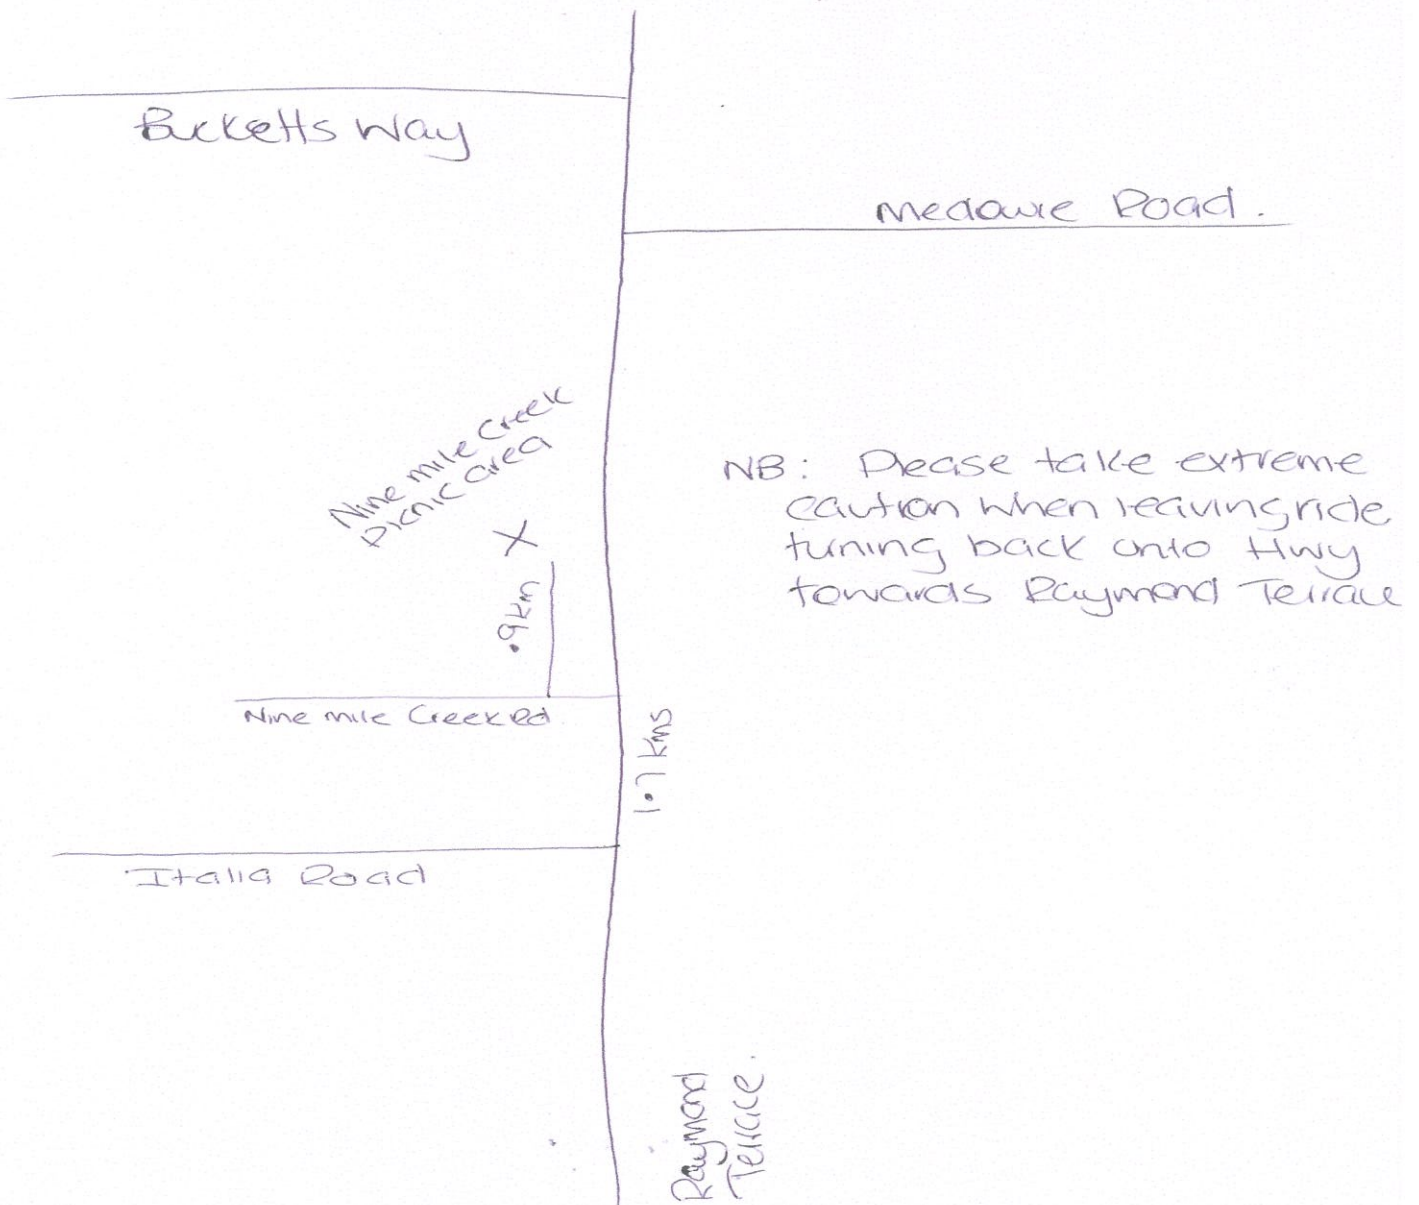 Bucketts Way
Medowie Road.
Nine mile Creek
picnic area
X
NB: Please take extreme
caution when leaving ride
turning back onto Hwy
towards Raymond Terrace
.9km
Nine mile Creek Rd
1.7 kms
Italia Road
Raymond
Terrace.